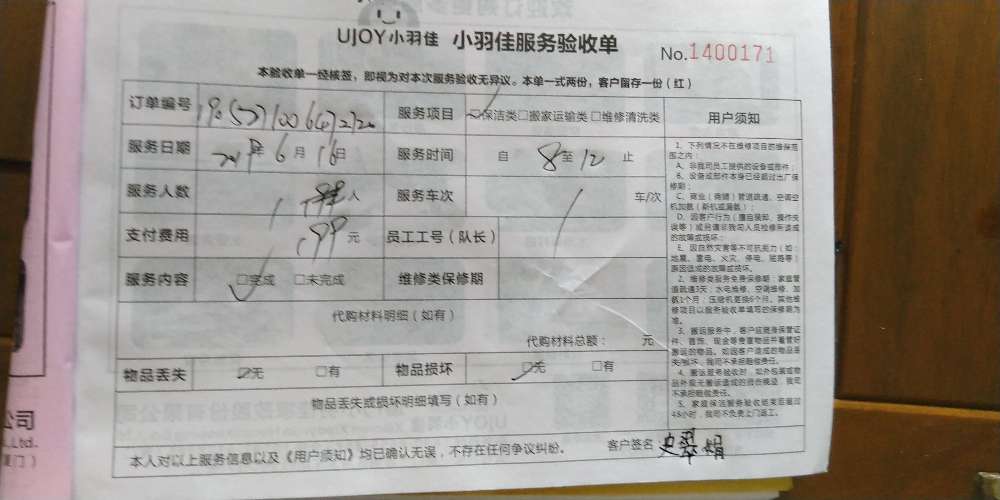 UJOY小羽佳 小羽佳服务验收单
No.1400171
本验收单一经核签，即视为对本次服务验收无异议。本单一式两份，客户留存一份（红）
订单编号
服务项目 □保洁类□搬家运输类□维修清洗类
服务日期 2019年6月16日
服务时间 自 8 至 12 止
服务人数 人
服务车次 车/次
支付费用 199元
员工工号（队长）
服务内容 □完成 □未完成
维修类保修期
代购材料明细（如有）
代购材料总额： 元
物品丢失 □无 □有
物品损坏 □无 □有
物品丢失或损坏明细填写（如有）
客户签名 史翠娟
本人对以上服务信息以及《用户须知》均已确认无误，不存在任何争议纠纷。
用户须知
1、下列情况不在维修项目的维保范
围之内：
A、非我司员工提供的设备或部件；
B、设备或部件本身已经超过出厂保
修期；
C、商业（商铺）管道疏通、空调空
机加氨（新机或漏氨）；
D、因客户行为（擅自装卸、操作失
误等）或另请非我司人员检修所造成
的故障或损坏；
E、因自然灾害等不可抗能力（如：
地震、雷电、火灾、停电、短路等）
原因造成的故障或损坏。
2、维修类服务免费保修期：家庭管
道疏通3天，水电维修、空调维修、加
氨1个月，压缩机更换6个月。其他维
修项目以服务验收单填写的保修期为
准。
3、搬运服务中，客户应随身保管证
件、首饰、现金等贵重物品并看管好
搬运的物品。如因客户造成的物品丢
失/损坏，我司不承担赔偿责任。
4、搬运服务验收时，如外包装或物
品外观无搬运造成的损伤痕迹，我司
不承担赔偿责任。
5、家庭保洁服务验收结束后超过
48小时，我司不负责上门返工。
公司
.,Ltd.
厦门）